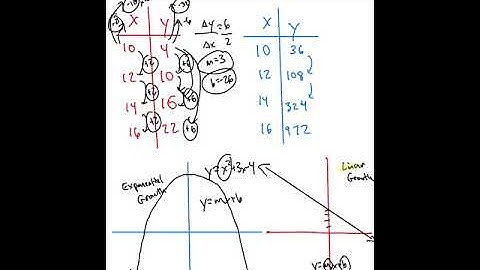 X Y
10 4
12 10
14 16
16 22
+2 +6
+2 +6
+2 +6
-6
Δy = 6
Δx 2
m=3
b=-26
X Y
10 36
12 108
14 324
16 972
Exponential
Growth
y=x²+3x-4
y=mx+b
Linear
Growth
y=mx+b